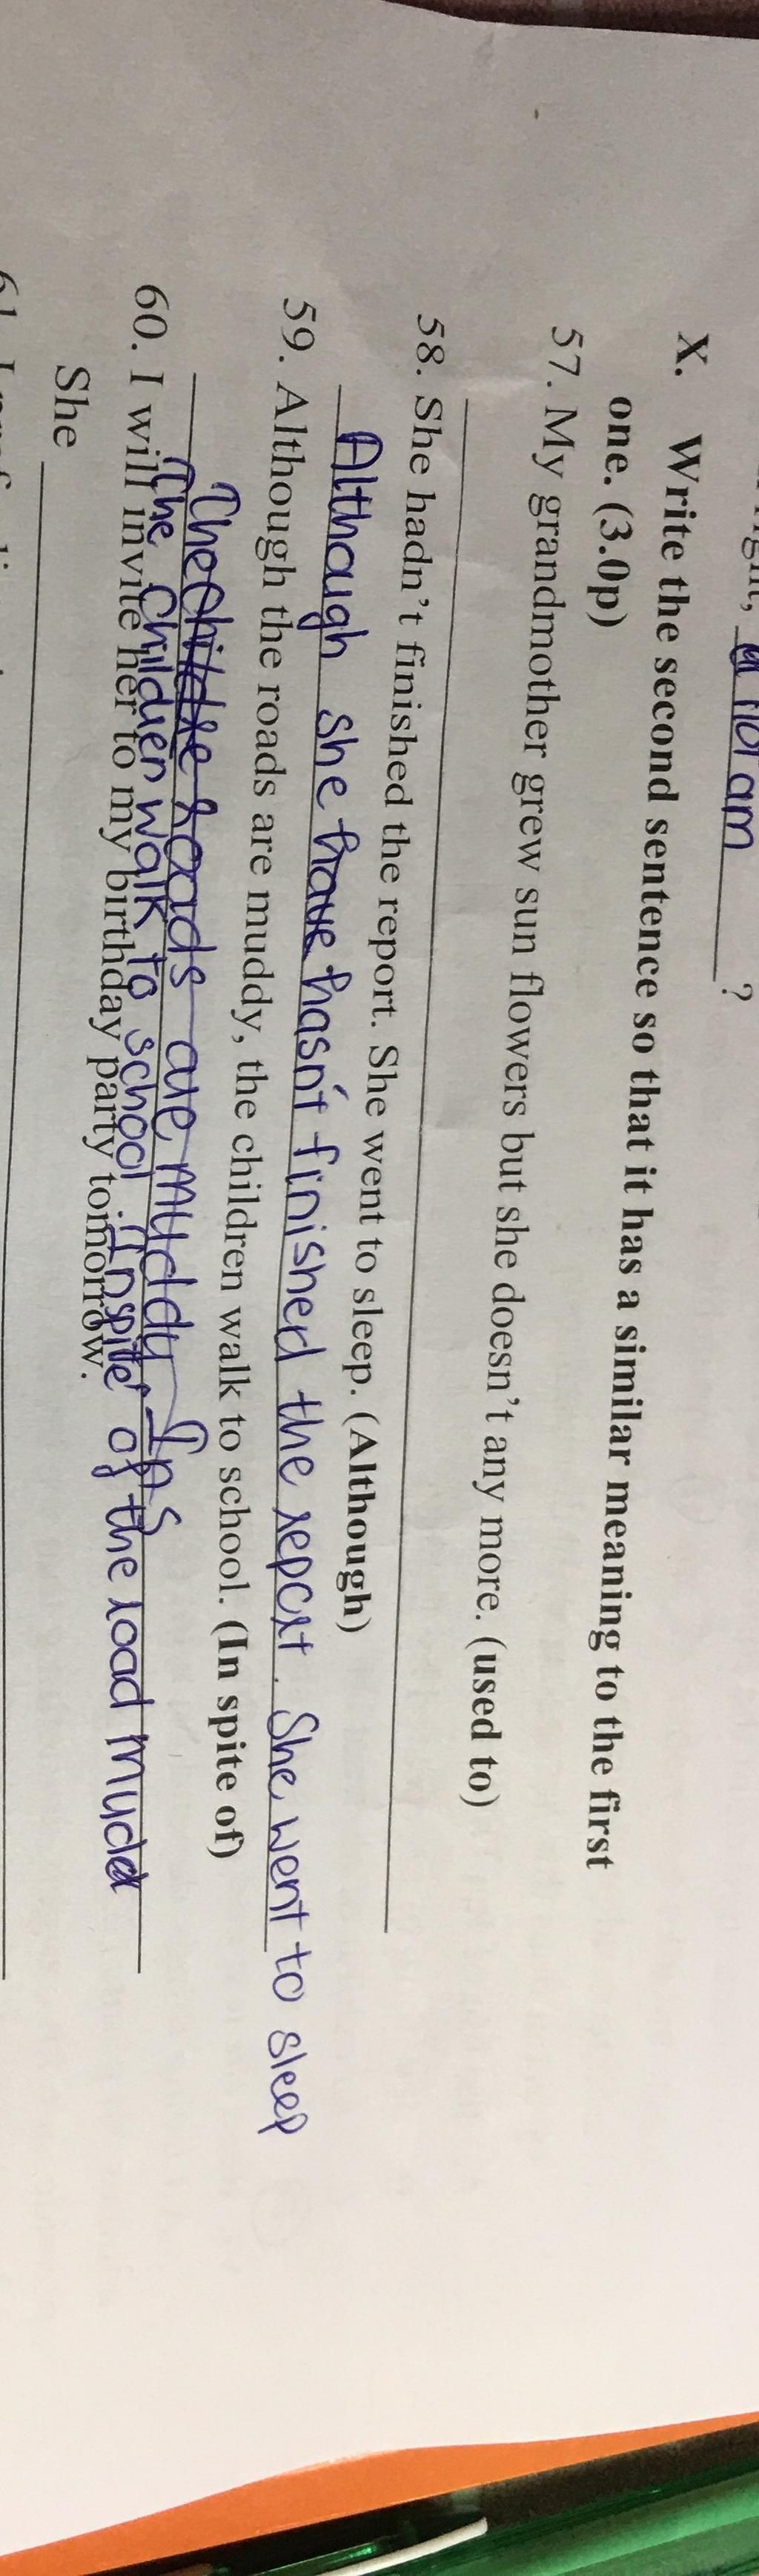 am
?
X. Write the second sentence so that it has a similar meaning to the first
one. (3.0p)
57. My grandmother grew sun flowers but she doesn't any more. (used to)
58. She hadn't finished the report. She went to sleep. (Although)
Although she have hasn't finished the report. She went to sleep
59. Although the roads are muddy, the children walk to school. (In spite of)
roads are muddy Ins
The children walk to school Inspite of the road mudd
60. I will invite her to my birthday party tomorrow.
She